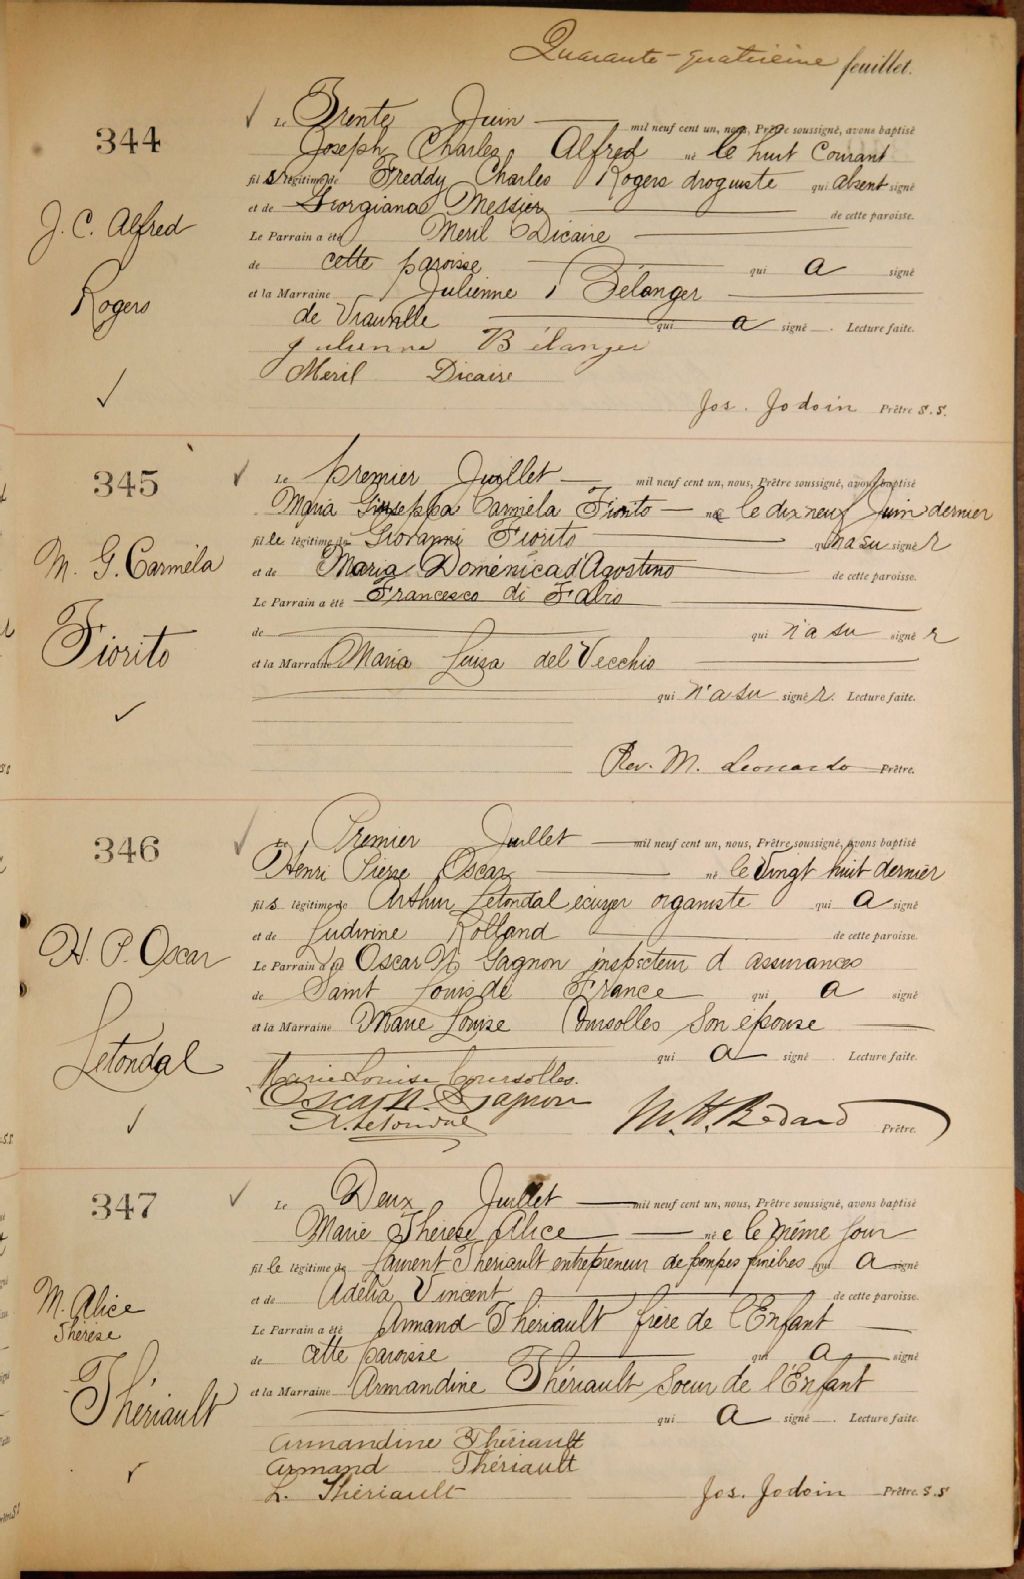 Quarante-quatrième feuillet.
344
Le Trente Juin mil neuf cent un, nous, Prêtre soussigné, avons baptisé
Joseph Charles Alfred né le huit courant
fils légitime de Freddy Charles Rogers droguiste qui absent signé
et de Georgiana Messier de cette paroisse.
J. C. Alfred
Le Parrain a été Meril Dicaire
de cette paroisse qui a signé
Rogers
et la Marraine Julienne Bélanger
de qui a signé. Lecture faite.
Julienne Bélanger
Meril Dicaire
Jos. Jodoin Prêtre S.S.
345
Le premier Juillet mil neuf cent un, nous, Prêtre soussigné, avons baptisé
Maria Giuseppa Carmèla Fiorito née le dix neuf Juin dernier
fille légitime de Giovanni Fiorito qui n'a su signer
M. G. Carmèla
et de Maria Doménica d'Agostino de cette paroisse.
Le Parrain a été Francesco di Fabio
Fiorito
de qui n'a su signer
et la Marraine Maria Luisa del Vecchio
qui n'a su signer. Lecture faite.
Rev. M. Leonardo Prêtre.
346
Le Premier Juillet mil neuf cent un, nous, Prêtre soussigné, avons baptisé
Henri Pierre Oscar né le Vingt huit dernier
fils légitime de Arthur Letondal écuyer organiste qui a signé
et de Ludivine Rolland de cette paroisse.
H. P. Oscar
Le Parrain a été Oscar N Gagnon inspecteur d assurances
de Saint Louis de France qui a signé
et la Marraine Marie Louise Coursolles son épouse
Letondal
qui a signé. Lecture faite.
Marie Louise Coursolles.
Oscar N. Gagnon
A. Letondal
M. H. Bédard Prêtre.
347
Le Deux Juillet mil neuf cent un, nous, Prêtre soussigné, avons baptisé
Marie Thérèse Alice née le même jour
fille légitime de Laurent Thériault entrepreneur de pompes funèbres qui a signé
et de Adélia Vincent de cette paroisse.
M. Alice
Thérèse
Le Parrain a été Armand Thériault frère de l'Enfant
de cette paroisse qui a signé
Thériault
et la Marraine Armandine Thériault Soeur de l'Enfant
qui a signé. Lecture faite.
Armandine Thériault
Armand Thériault
L. Thériault
Jos. Jodoin Prêtre S.S